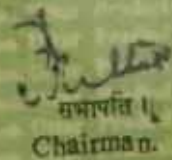 सभापति ।
Chairman.